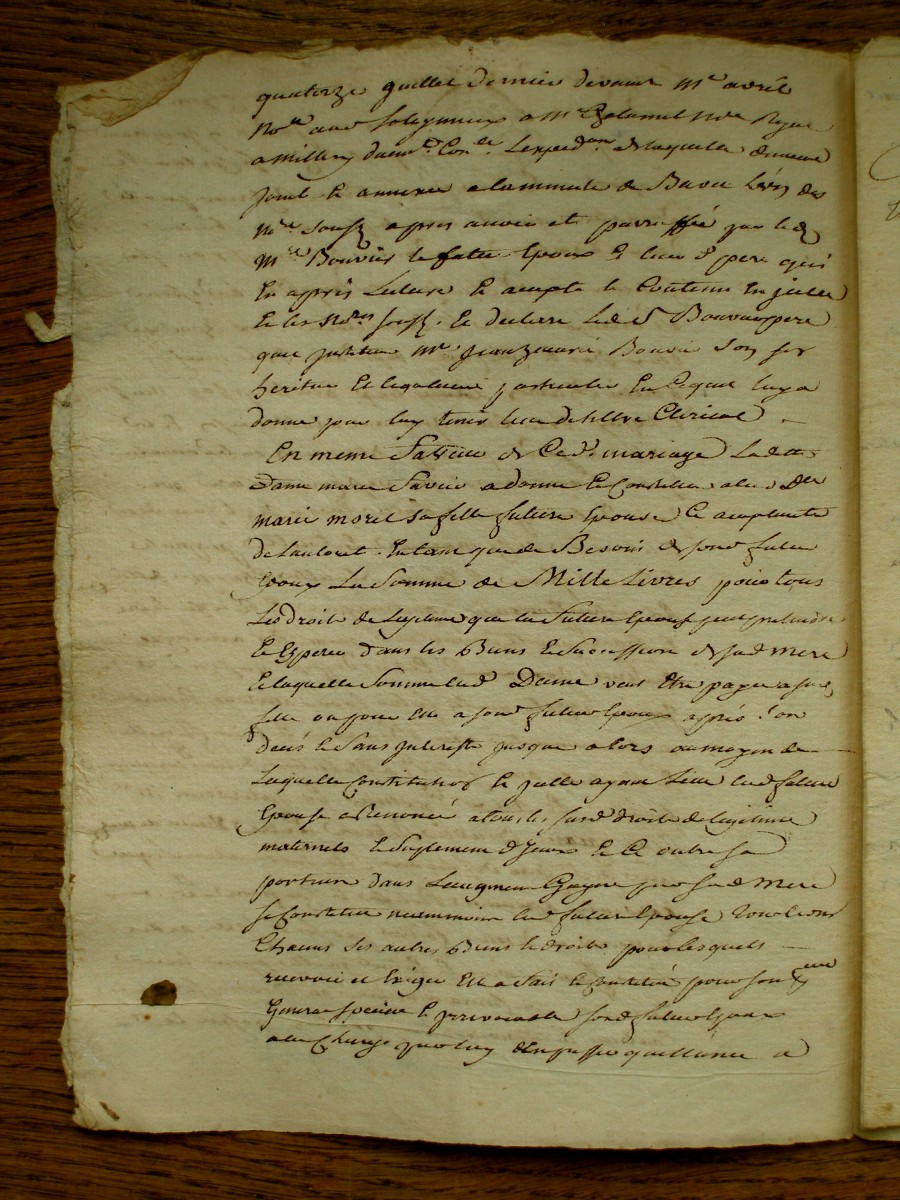 quatorze juillet dernier devant Me avril
Nore a M Notre Royal
a duemt Con.ée L'expedon de laquelle demeure
jointe et annexée a la minutte de
Nre soussé apres avoir eté parraffée par led
Mre Bouvier le futur Epoux et led S pere qui
En apprès Lecture Et accepté le Contenu En icelle
Et les Nores soussé. Et declare Led S Bouvier pere
que Mr Jean Bouvier Son fils
heritier Et legataire particulier En ce quil luy a
donné pour luy tenir lieu de tiltre Clerical
En meme faveur de Ced. mariage Ladtte
Dame marie a donné Et Constitué a lad Dlle
marie morel sa fille future Epouse Et acceptante
de l'autorité En tant que de Besoin de sond futur
Epoux La Somme de Mille Livres pour tous
Les droits de Legitime que lad future Epouse peut pretendre
Et Esperer dans les Biens Et Succession de sad mere
Et laquelle Somme lad Dame veut Etre payée a sad
fille ou pour Elle a sond futur Epoux après Son
decés Et Sans Interests jusque alors au moyen de
Laquelle Constitution Et icelle ayant Lieu lad future
Epouse a Renoncé a tous les susd droits de Legitime
maternels Et Suplement d'Yceux Et Ce outre sa
portion dans Laugment Gagné par sad mere
se Constitue neanmoins lad future Epouse tous Et uns
Chacuns Ses autres Biens Et droits pour lesquels
recevoir et Exiger Elle a fait Et Constitué pour son preur
General special Et irrevocable sond futur Epoux
a la Charge par luy d'En passer quittance a